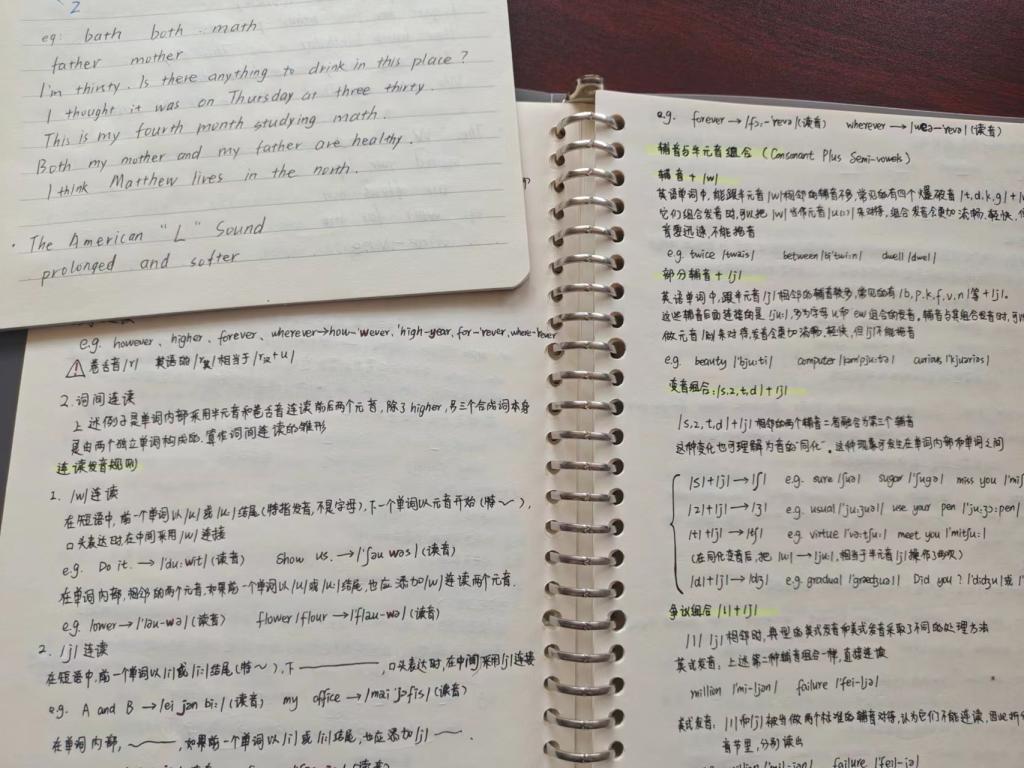 2
eg: bath both math
father mother
I'm thirsty. Is there anything to drink in this place?
I thought it was on Thursday at three thirty.
This is my fourth month studying math.
Both my mother and my father are healthy.
I think Matthew lives in the north.
· The American "L" Sound
prolonged and softer
e.g. however, higher, forever, wherever→how-'wever, 'high-year, for-'rever, where-'rever
卷舌音/r/ 英语的 相当于
2. 词间连读
上述例子是单词内部采用半元音和卷舌音连读前后两个元音,除了higher,另三个合成词本身
是由两个独立单词构成的,算作词间连读的雏形
连读发音规则
1. /w/连读
在短语中,前一个单词以/u/或/u:/结尾(特指发音,不是字母),下一个单词以元音开始(特~),
口头表达时在中间采用/w/连接
e.g. Do it. →/'du:wit/(读音) Show us. →/'ʃəu wəs/(读音)
在单词内部,相邻的两个元音,如果前一个单词以/u/或/u:/结尾,也应添加/w/连读两个元音.
e.g. lower→/'ləu-wə/(读音) flower/flour→/'flau-wə/(读音)
2. /j/连读
在短语中,前一个单词以/i/或/i:/结尾(特~),下———,口头表达时,在中间采用/j/连接
e.g. A and B →/ei jən bi:/(读音) my office →/mai 'jɔfis/(读音)
在单词内部,~,如果前一个单词以/i/或/i:/结尾,也应添加/j/~.
(读音)
e.g. forever →/fɔ:-'revə/(读音) wherever →/weə-'revə/(读音)
辅音与半元音组合 (Consonant Plus Semi-vowels)
辅音+/w/
英语单词中,能跟半元音/w/相邻的辅音不多,常见的有四个爆破音/t,d,k,g/+/w
它们组合发音时,可以把/w/当作元音/u(:)/来对待,组合发音会更加流畅,轻快,但
音要迅速,不能拖音
e.g. twice /twais/ between /bi'twi:n/ dwell /dwel/
部分辅音+/j/
英语单词中,跟半元音/j/相邻的辅音较多,常见的有/b,p,k,f,v,n/等+/j/.
这些辅音后面连接的是/ju:/,多为字母u和ew组合的发音,辅音与其组合发音时,可
做元音/i/来对待,发音会更加流畅,轻快,但/j/不能拖音
e.g. beauty /'bju:ti/ computer /kəm'pju:tə/ curious /'kjuəriəs/
变音组合:/s,z,t,d/+/j/
/s,z,t,d/+/j/相邻的两个辅音二者融合为第三个辅音
这种变化也可理解为音的"同化"。这种现象可发生在单词内部和单词之间
/s/+/j/→/ʃ/ e.g. sure /ʃuə/ sugar /'ʃugə/ miss you /'miʃ
/z/+/j/→/ʒ/ e.g. usual /'ju:ʒuəl/ use your pen /'ju:ʒɔ:pen/
/t/+/j/→/tʃ/ e.g. virtue /'və:tʃu:/ meet you /'mitʃu:/
(在同化变音后,把/w/→/ju:/,相当于半元音/j/
/d/+/j/→/dʒ/ e.g. gradual /'grædʒuəl/ Did you? /'didʒu/或/
争议组合/l/+/j/
/l/ /j/相邻时,典型的美式发音和英式发音采取了不同的处理方法
英式发音:上述第二种辅音组合一样,直接连读
million /'mi-ljən/ failure /'fei-ljə/
美式发音:/l/和/j/被当做两个标准的辅音对待,认为它们不能连读,因此拆分
音节里,分别读出
million /'mil-jən/ failure /'feil-jə/